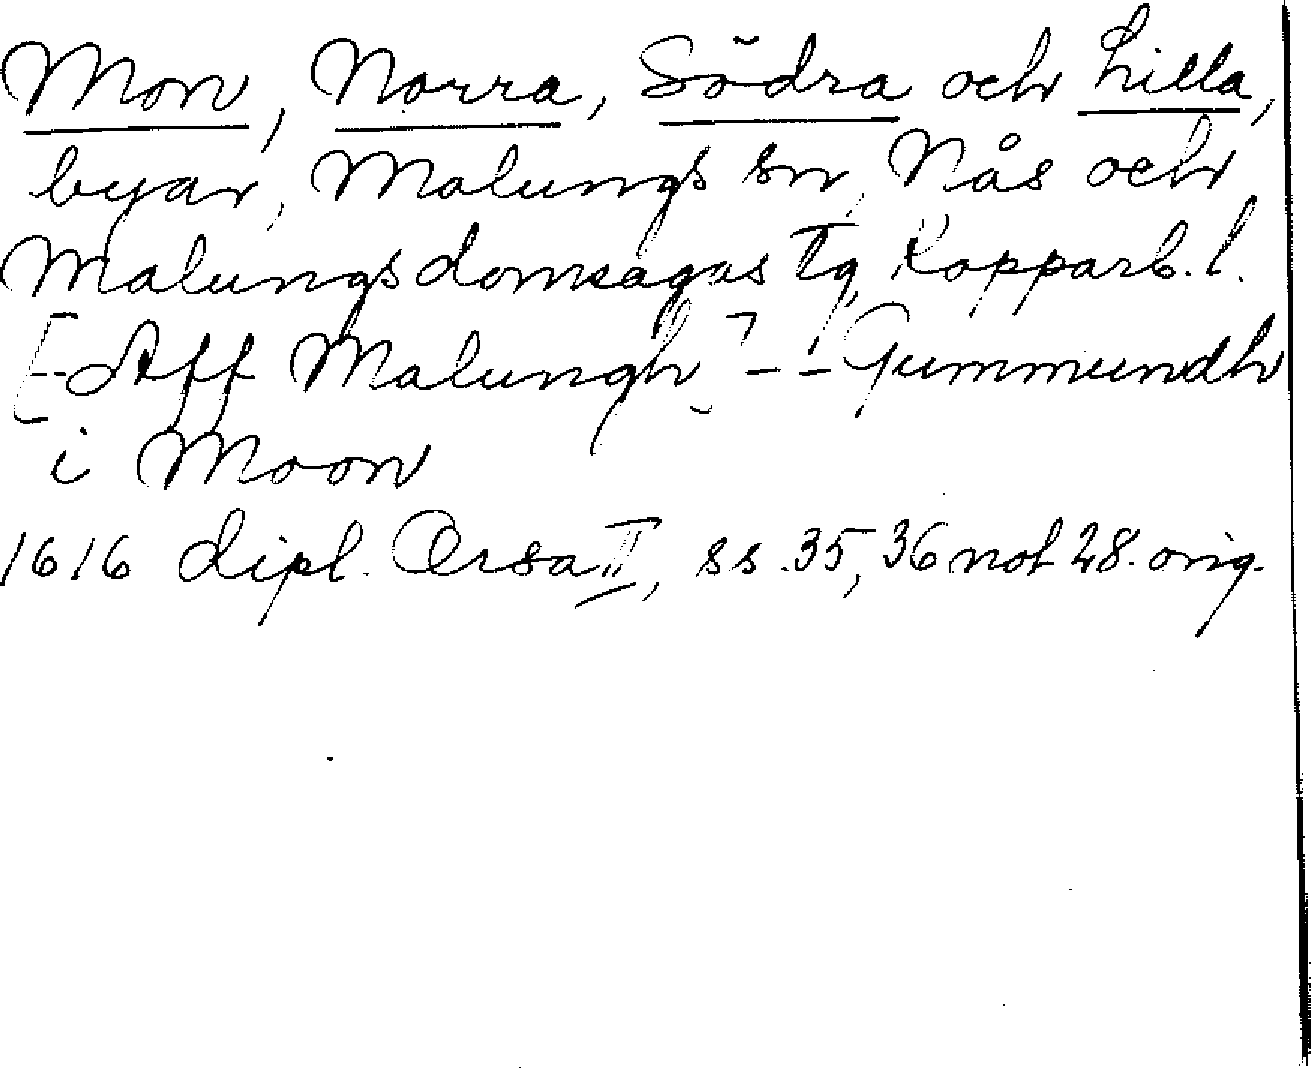 Mon, Norra, Södra och Lilla,
byar, Malungs sn, Nås och
Malungs domsagas tg, Kopparb. l.
[-Aff Malungh] - - Gummundh
i Moon
1616 dipl. Orsa II, ss. 35, 36 not 28. orig.